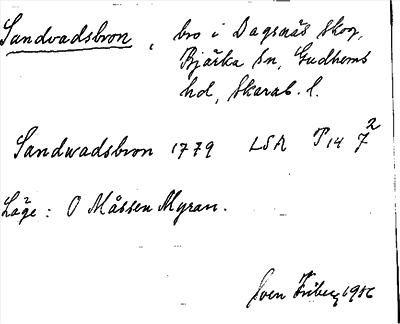 Sandvadsbron, bro i Dagsnäs skog,
Bjärka sn, Gudhems
hd, Skarab. l.
Sandwadsbron 1779 LSA P14 7²
Läge: O Måssen Myran.
Sven Friberg 1916